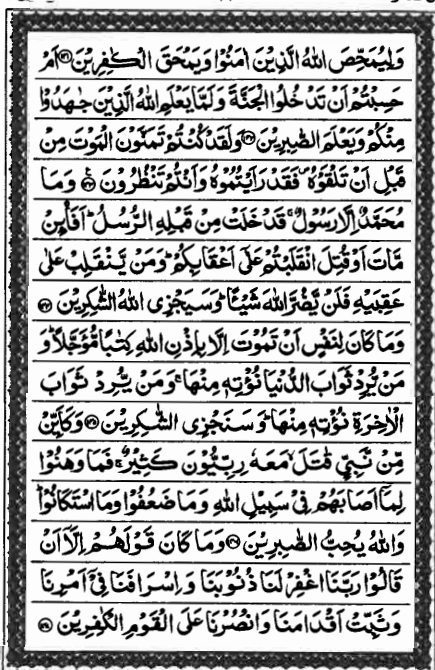 وَلِيُمَحِّصَ اللّٰهُ الَّذِيْنَ اٰمَنُوْا وَيَمْحَقَ الْكٰفِرِيْنَ ۝ اَمْ
حَسِبْتُمْ اَنْ تَدْخُلُوا الْجَنَّةَ وَلَمَّا يَعْلَمِ اللّٰهُ الَّذِيْنَ جٰهَدُوْا
مِنْكُمْ وَيَعْلَمَ الصّٰبِرِيْنَ ۝ وَلَقَدْ كُنْتُمْ تَمَنَّوْنَ الْمَوْتَ مِنْ
قَبْلِ اَنْ تَلْقَوْهُ فَقَدْ رَاَيْتُمُوْهُ وَاَنْتُمْ تَنْظُرُوْنَ ۝ وَمَا
مُحَمَّدٌ اِلَّا رَسُوْلٌ ۚ قَدْ خَلَتْ مِنْ قَبْلِهِ الرُّسُلُ ؕ اَفَا۟ئِنْ
مَّاتَ اَوْ قُتِلَ انْقَلَبْتُمْ عَلٰٓى اَعْقَابِكُمْ ؕ وَمَنْ يَّنْقَلِبْ عَلٰى
عَقِبَيْهِ فَلَنْ يَّضُرَّ اللّٰهَ شَيْـًٔا ؕ وَسَيَجْزِى اللّٰهُ الشّٰكِرِيْنَ ۝
وَمَا كَانَ لِنَفْسٍ اَنْ تَمُوْتَ اِلَّا بِاِذْنِ اللّٰهِ كِتٰبًا مُّؤَجَّلًا ؕ وَ
مَنْ يُّرِدْ ثَوَابَ الدُّنْيَا نُؤْتِهٖ مِنْهَا ۚ وَمَنْ يُّرِدْ ثَوَابَ
الْاٰخِرَةِ نُؤْتِهٖ مِنْهَا ؕ وَسَنَجْزِى الشّٰكِرِيْنَ ۝ وَكَاَيِّنْ
مِّنْ نَّبِيٍّ قٰتَلَ ۙ مَعَهٗ رِبِّيُّوْنَ كَثِيْرٌ ۚ فَمَا وَهَنُوْا
لِمَآ اَصَابَهُمْ فِيْ سَبِيْلِ اللّٰهِ وَمَا ضَعُفُوْا وَمَا اسْتَكَانُوْا ؕ
وَاللّٰهُ يُحِبُّ الصّٰبِرِيْنَ ۝ وَمَا كَانَ قَوْلَهُمْ اِلَّآ اَنْ
قَالُوْا رَبَّنَا اغْفِرْ لَنَا ذُنُوْبَنَا وَاِسْرَافَنَا فِيْٓ اَمْرِنَا
وَثَبِّتْ اَقْدَامَنَا وَانْصُرْنَا عَلَى الْقَوْمِ الْكٰفِرِيْنَ ۝